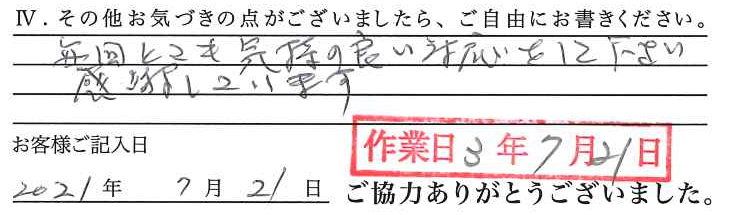 Ⅳ．その他お気づきの点がございましたら、ご自由にお書きください。
毎回とても気持の良い対応をして下さい
感謝しています
お客様ご記入日
作業日 3 年 7 月 21 日
2021 年 7 月 21 日 ご協力ありがとうございました。